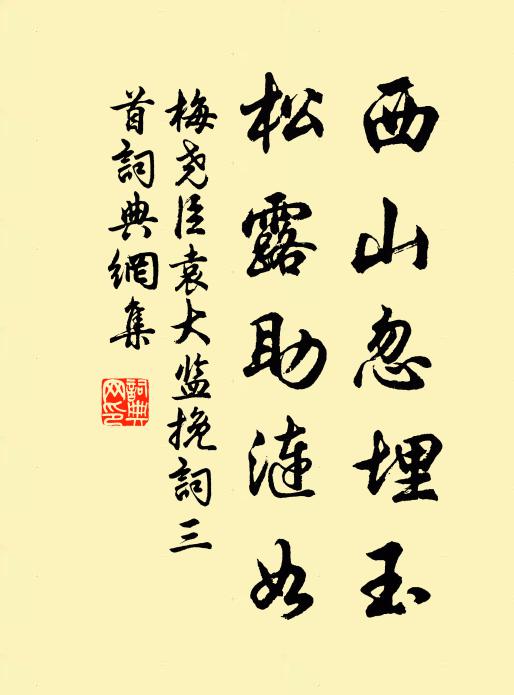 西山忽埋玉
松露助漣如
梅尧臣袁大监挽詞三
首詞典網集
詞典
网印